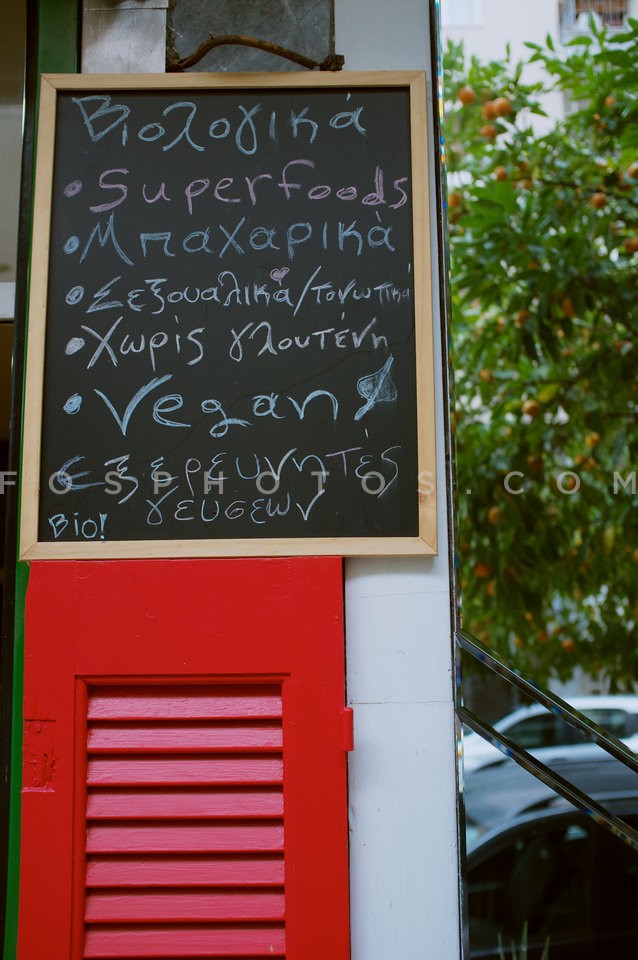 Βιολογικά
• Superfoods
• Μπαχαρικά
• Σεξουαλικά/τονωτικά
• Χωρίς γλουτένη
• Vegan
Εξερευνητές
γεύσεων
Bio!
FOSPHOTOS.COM